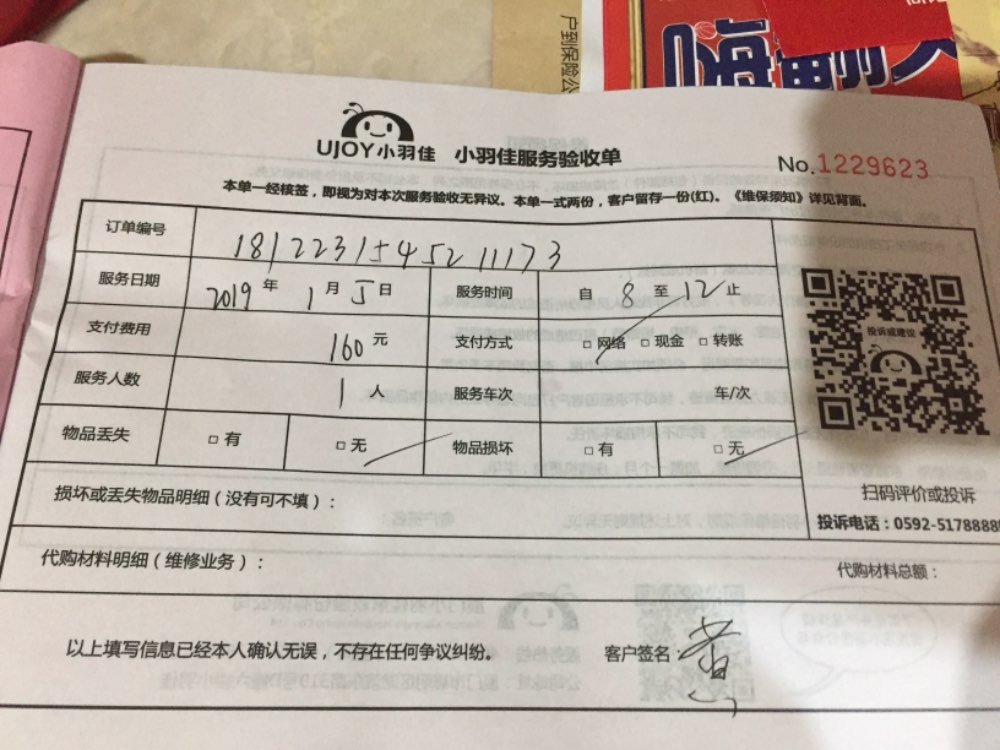 户到保险公
嗨翻天
UJOY小羽佳 小羽佳服务验收单
No.1229623
本单一经核签，即视为对本次服务验收无异议。本单一式两份，客户留存一份(红)。《维保须知》详见背面。
订单编号 18122315452 11173
服务日期 2019 年 1 月 5 日 服务时间 自 8 至 12 止
支付费用 160 元 支付方式 □ 网络 □ 现金 □ 转账
服务人数 1 人 服务车次 车/次
物品丢失 □ 有 □ 无 物品损坏 □ 有 □ 无
投诉或建议
扫码评价或投诉
投诉电话：0592-5178888
损坏或丢失物品明细（没有可不填）：
代购材料明细（维修业务）： 代购材料总额：
以上填写信息已经本人确认无误，不存在任何争议纠纷。 客户签名：